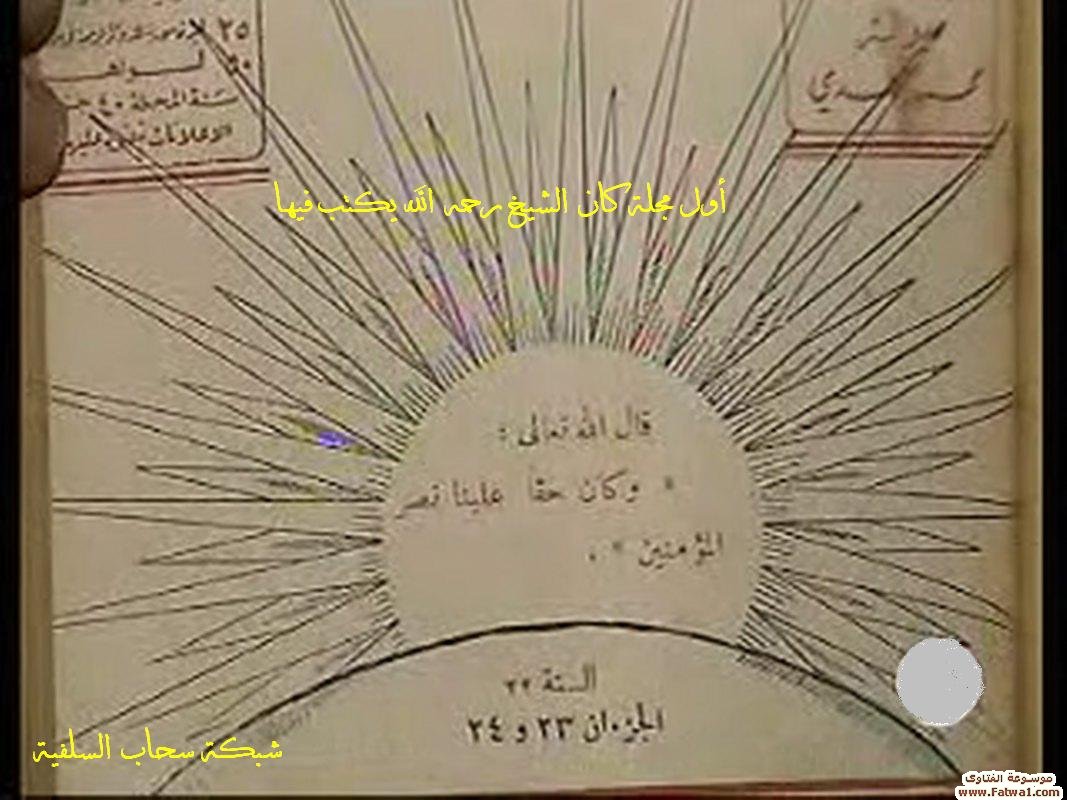 محمد حمدي
٢٥
سنة المجلة
الاعلانات
أول مجلة كان الشيخ رحمه الله يكتب فيها
قال الله تعالى :
« وكان حقا علينا نصر
المؤمنين » .
السنة ٢٢
الجزءان ٢٣ و ٢٤
شبكة سحاب السلفية
موسوعة الفتاوى
www.Fatwa1.com